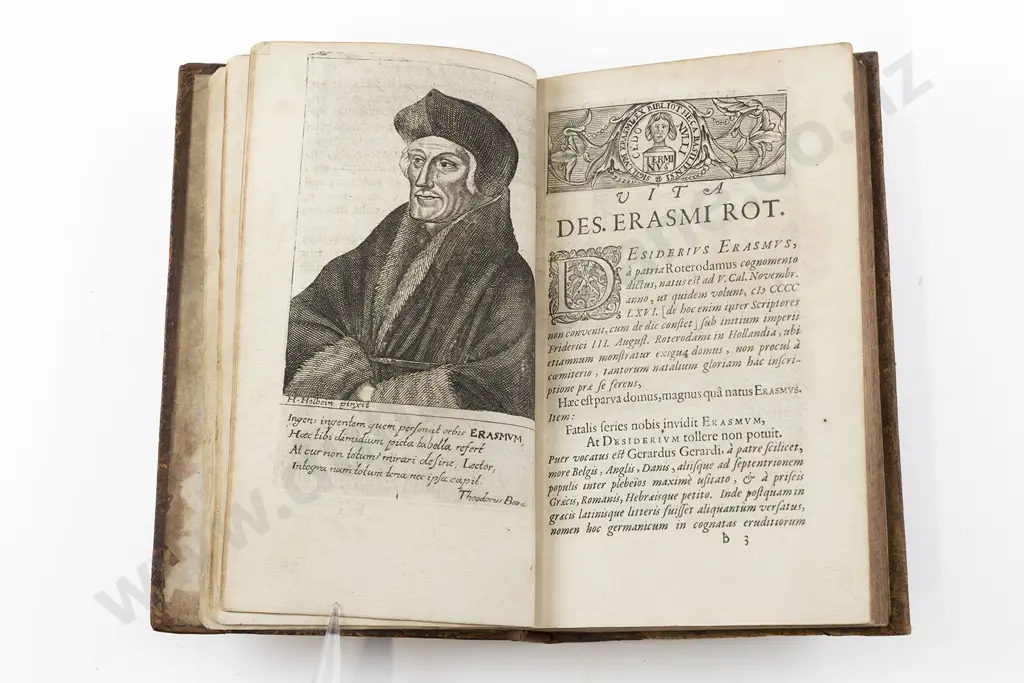 H. Holbein pinxit.
Ingens ingentem quem personat orbis ERASMVM,
Hæc tibi dimidium picta tabella refert
At cur non totum? mirari desine, Lector,
Integra nam totum terra nec ipsa capit.
Theodorus Beza
SIGILLVM ERASMI EX BIBLIOTHECA BASILIENSI
CEDO NVLLI
TERMI
NVS
VITA
DES. ERASMI ROT.
DESIDERIVS ERASMVS,
à patria Roterodamus cognomento
dictus, natus est ad V. Cal. Novembr.
anno, ut quidem volunt, cIɔ CCCC
LXVI. [de hoc enim inter Scriptores
non convenit, cum de die constet] sub initium imperii
Friderici III. August. Roterodami in Hollandia, ubi
etiamnum monstratur exigua domus, non procul à
cœmiterio, tantorum natalium gloriam hac inscri-
ptione præ se ferens,
Hæc est parva domus, magnus quâ natus ERASMVS.
Item:
Fatalis series nobis invidit ERASMVM,
At DESIDERIVM tollere non potuit.
Puer vocatus est Gerardus Gerardi, à patre scilicet,
more Belgis, Anglis, Danis, aliisque ad septentrionem
populis inter plebeios maximè usitato, & à priscis
Græcis, Romanis, Hebræisque petito. Inde postquam in
græcis latinisque litteris fuisset aliquantùm versatus,
nomen hoc germanicum in cognatas eruditiorum
b 3